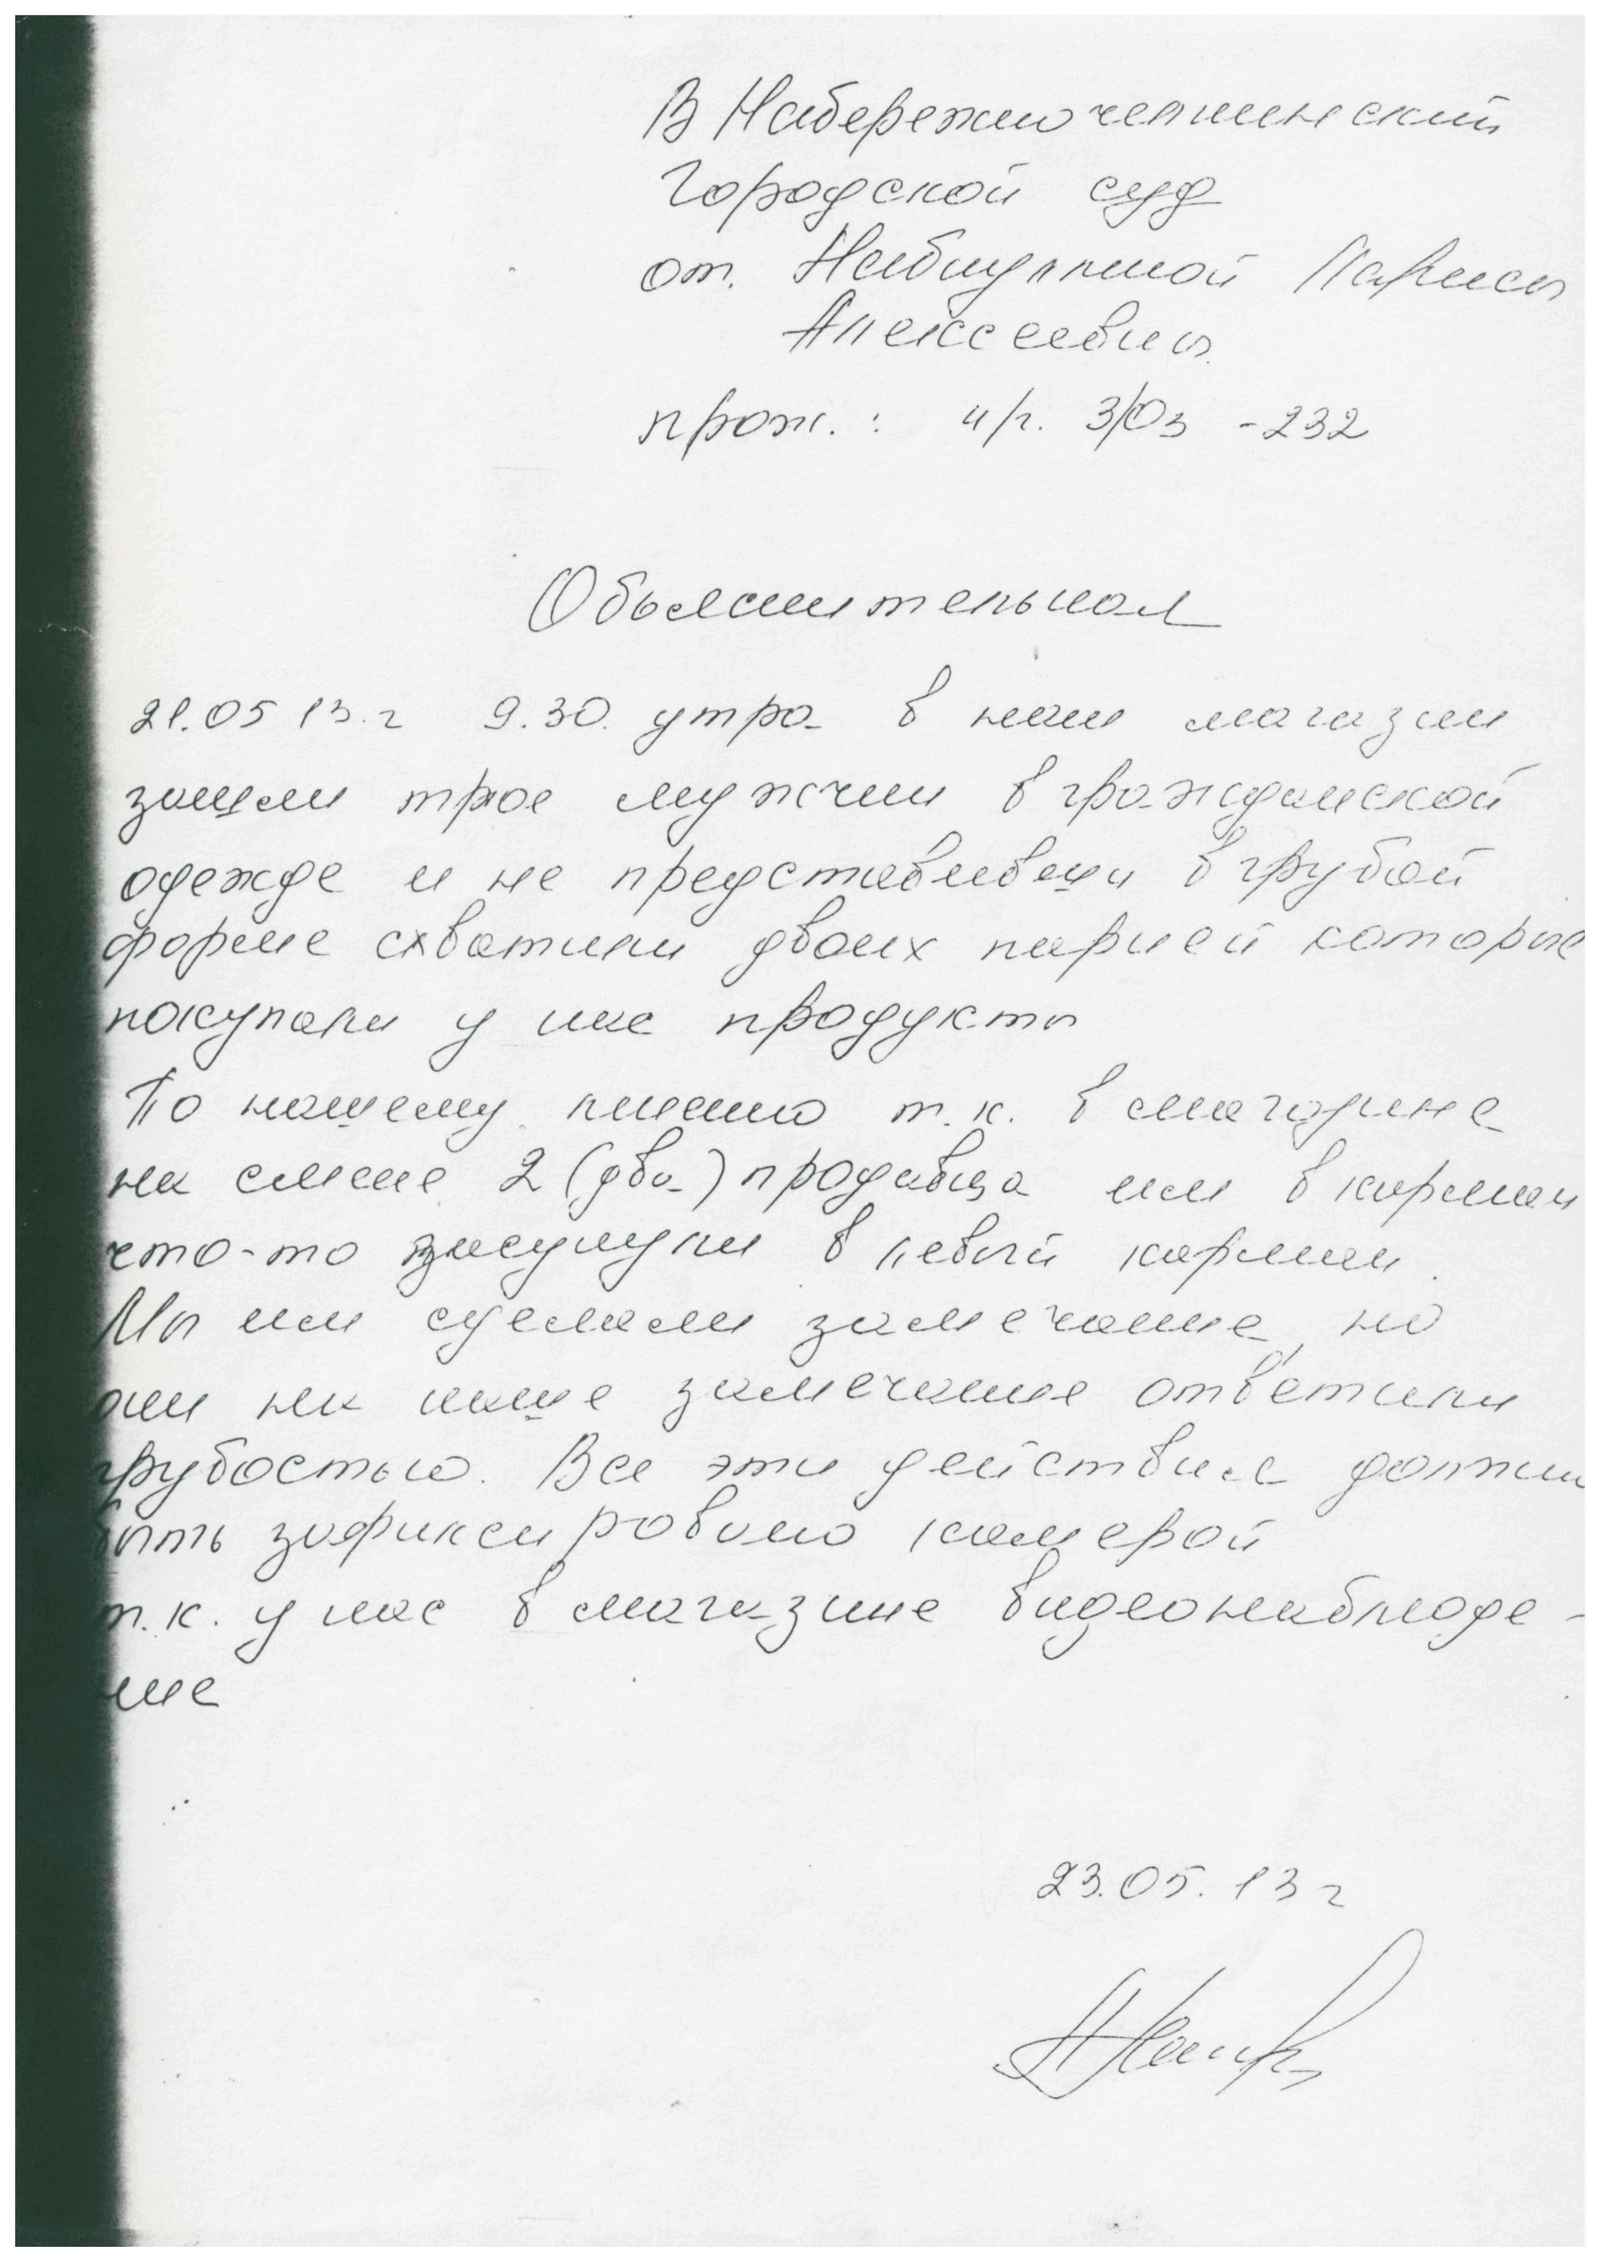 В Набережночелнинский
Городской суд
от. Набиуллиной Ларисы
Алексеевны.
прож.: н/г. 3/03 -232
Объяснительная
21.05 13.г 9.30. утра в наш магазин
зашли трое мужчин в гражданской
одежде и не представившы в грубой
форме схватили двоих парней которые
покупали у нас продукты
По нашему мнению т.к. в магазине
на смене 2 (два) продавца им в карман
что-то засунули в левый карман.
Мы им сделали замечание, но
они на наше замечание ответили
грубостью. Все эти действие должны
быть зафиксировано камерой
т.к. у нас в магазине видеонаблюде-
ние
23.05.13г